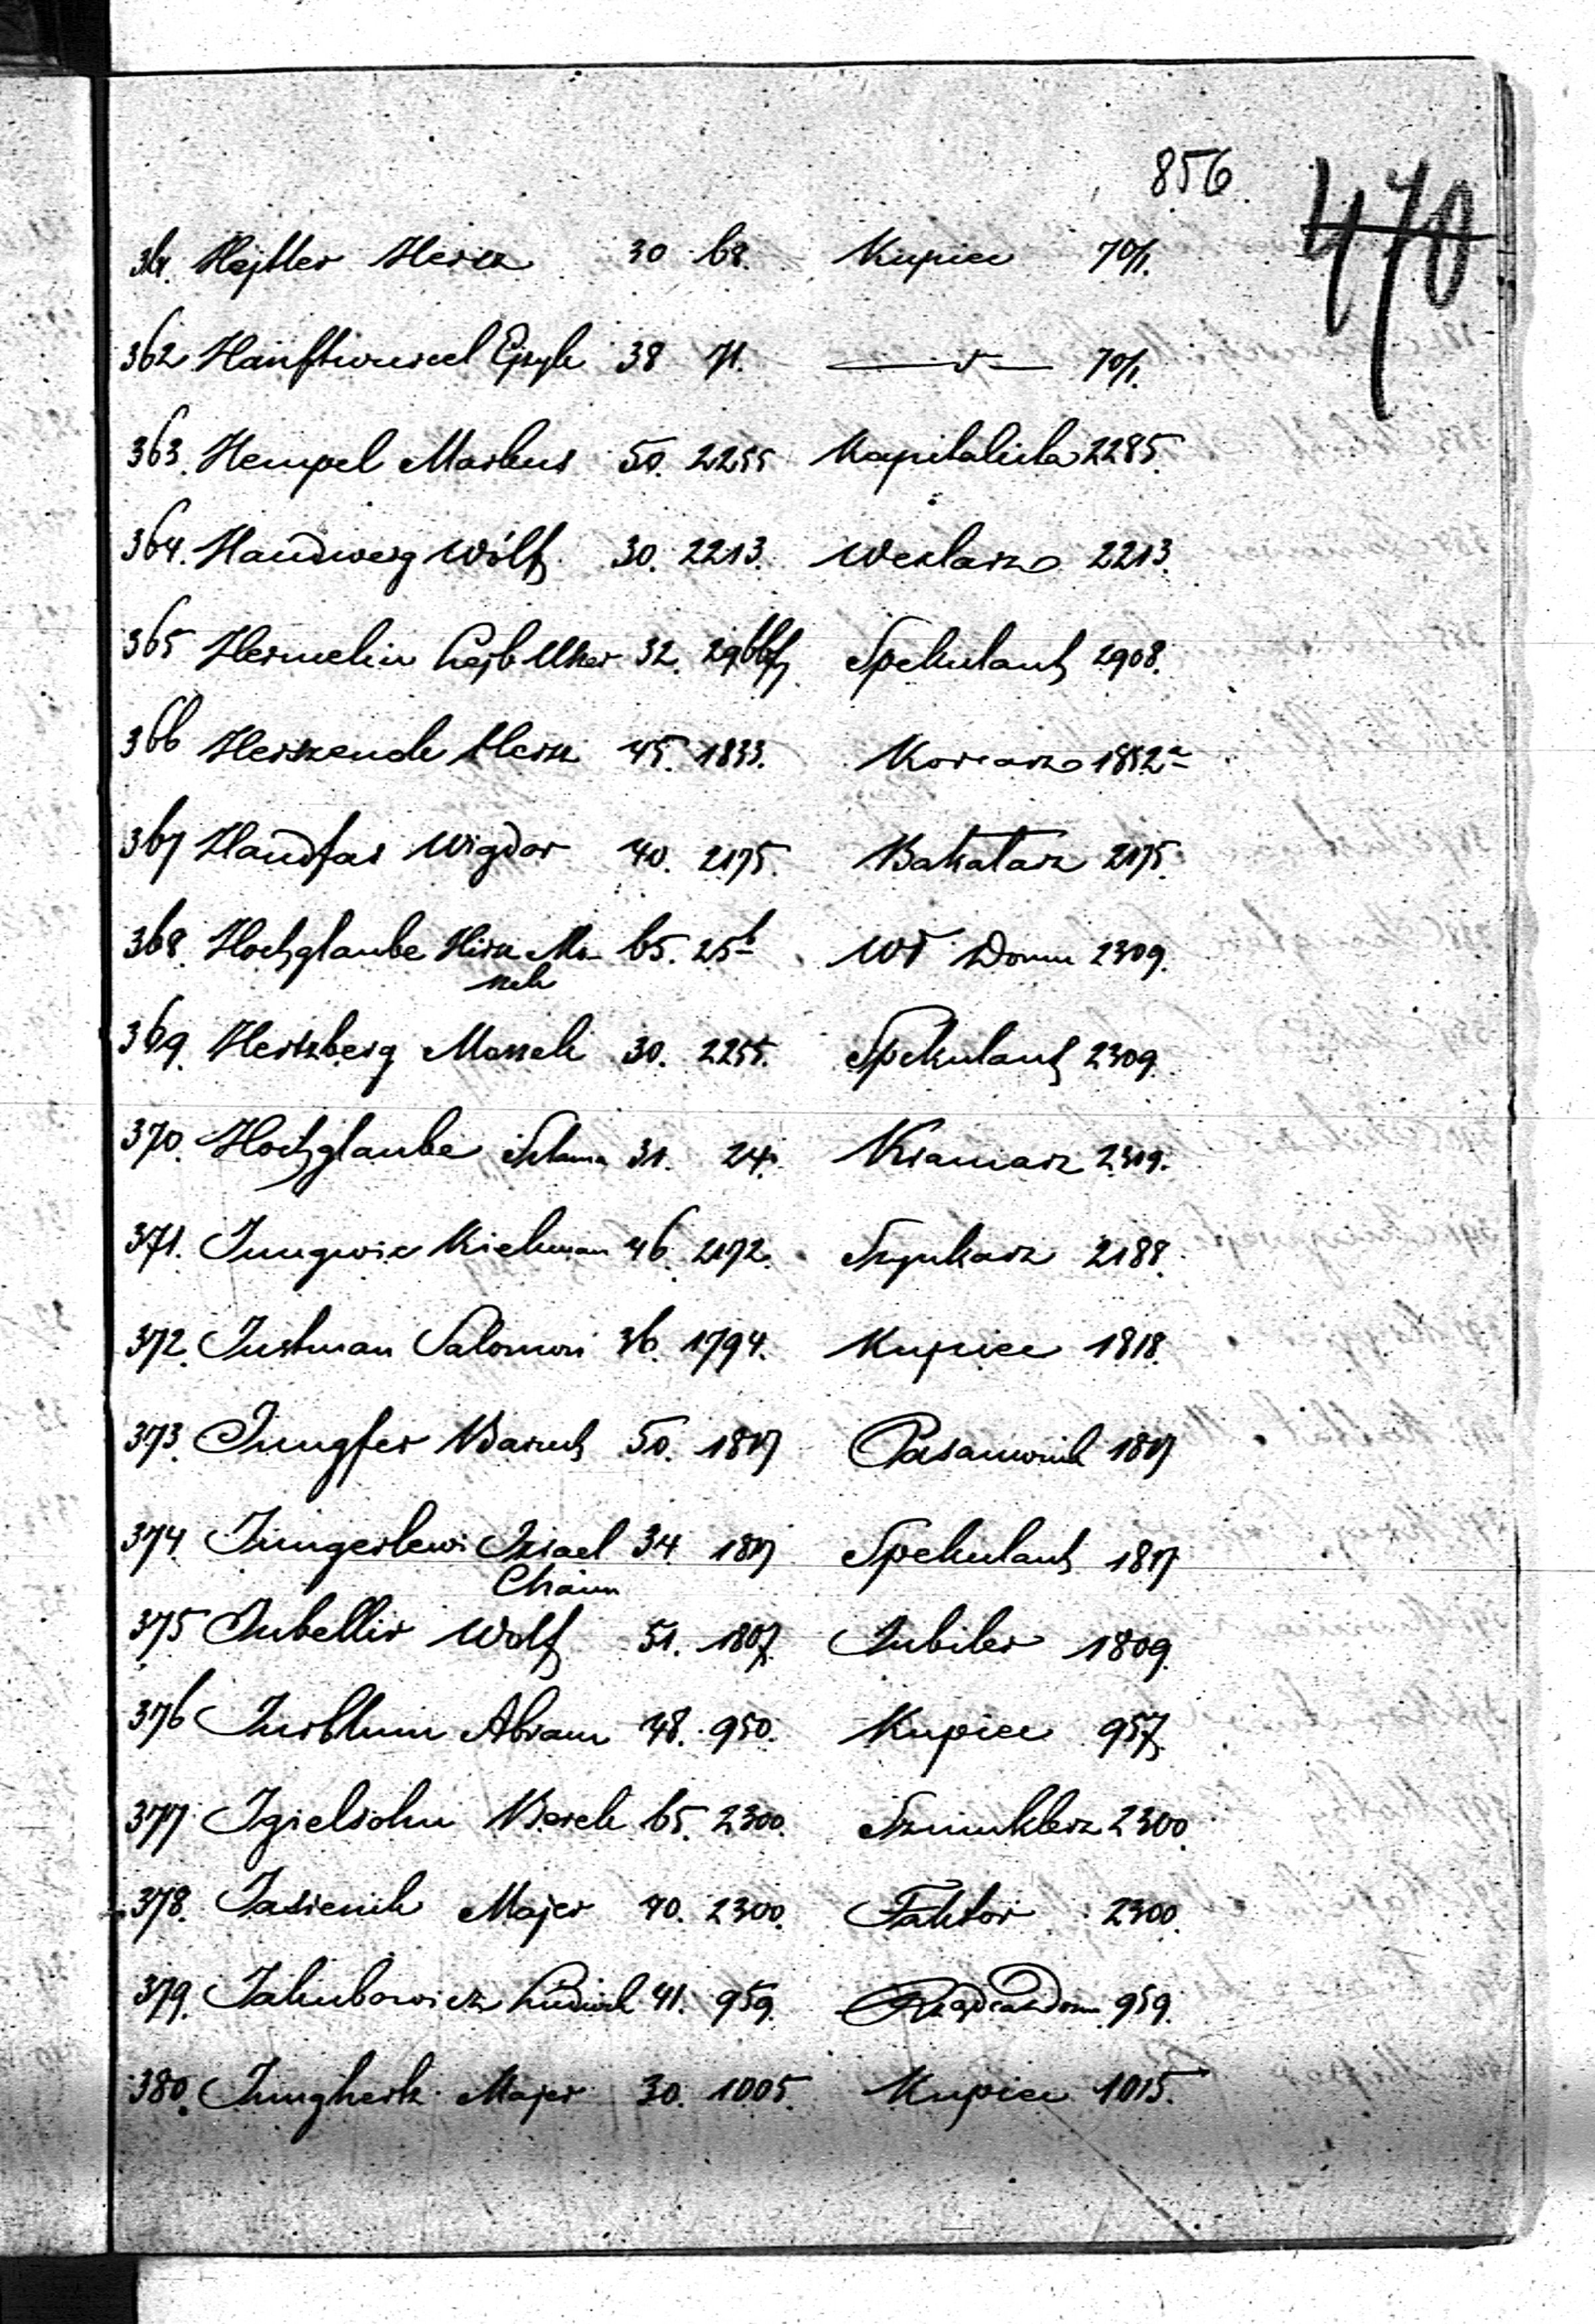 856
470
361. Hejtler Herck 30 68. Kupiec 70/1.
362 Hanftwurcel Ejzyk 38 71. —„— 70/1.
363. Hempel Markus 50. 2255 Kapitalista 2285.
364. Handwerg Wólf 30. 2213. Wexlarz 2213.
365 Hermelin Lejb Uszer 32. Spekulant 2908.
366 Herszenak Herck 45. 1833. Korcarz 1852a
367 Handfas Wigdor 40. 2175. Bakalarz 2175.
368. Hochglaube Hirsz Mo- 65. 25b Wł Domu 2309.
szek
369. Hertzberg Moszek 30. 2255. Spekulant 2309.
370. Hochglaube Szlama 31. 24. Kramarz 2309.
371. Jungwic Kielman 46. 2172. Szynkarz 2188.
372. Justman Salomon 36. 1794. Kupiec 1818.
373. Jungfer Baruch 50. 1817 Pasamonik 1817
374 Jungerlewi Izrael 34 1817 Spekulant 1817
Chaim
375 Jubellir Wolf 51. 1807. Jubiler 1809.
376 Jurblum Abram 48. 950. Kupiec 957.
377 Igielsohn Berek 65. 2300. Szmuklerz 2300.
378. Jasienik Majer 40. 2300. Faktor 2300.
379. Jakubowicz Ludwik 41. 959. Rządca Dom 959.
380. Junghertz Majer 30. 1005. Kupiec 1015.